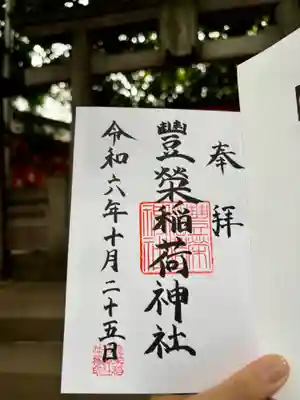 奉拝
豐榮稲荷神社
令和六年十月二十五日